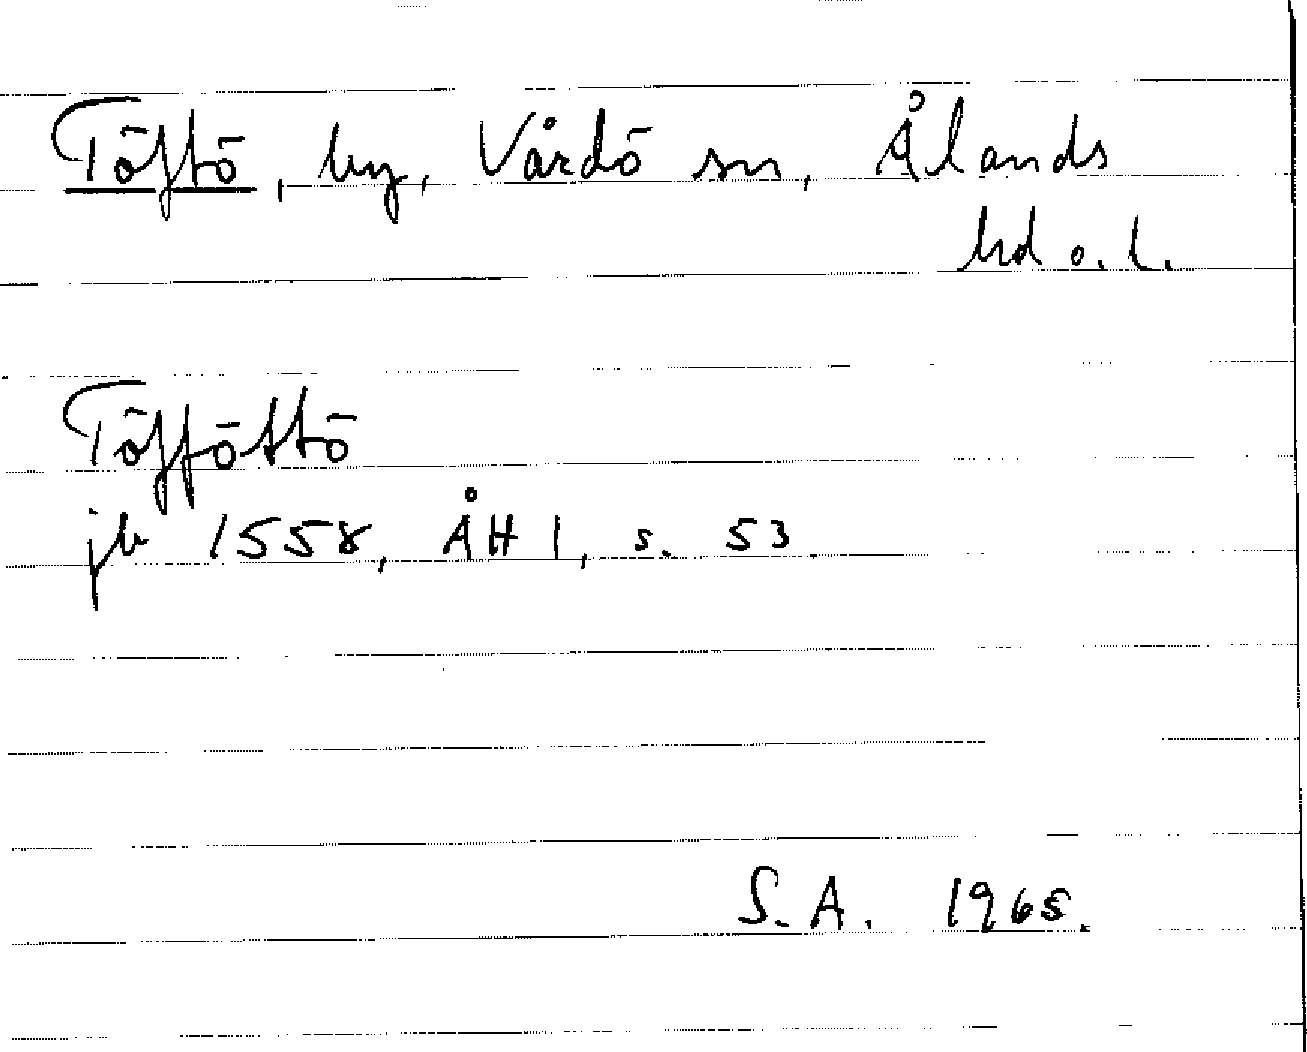 Töftö, by, Vårdö sn, Ålands
hd o. l.
Töfföttö
jb 1558, ÅH 1, s. 53
S.A. 1965.